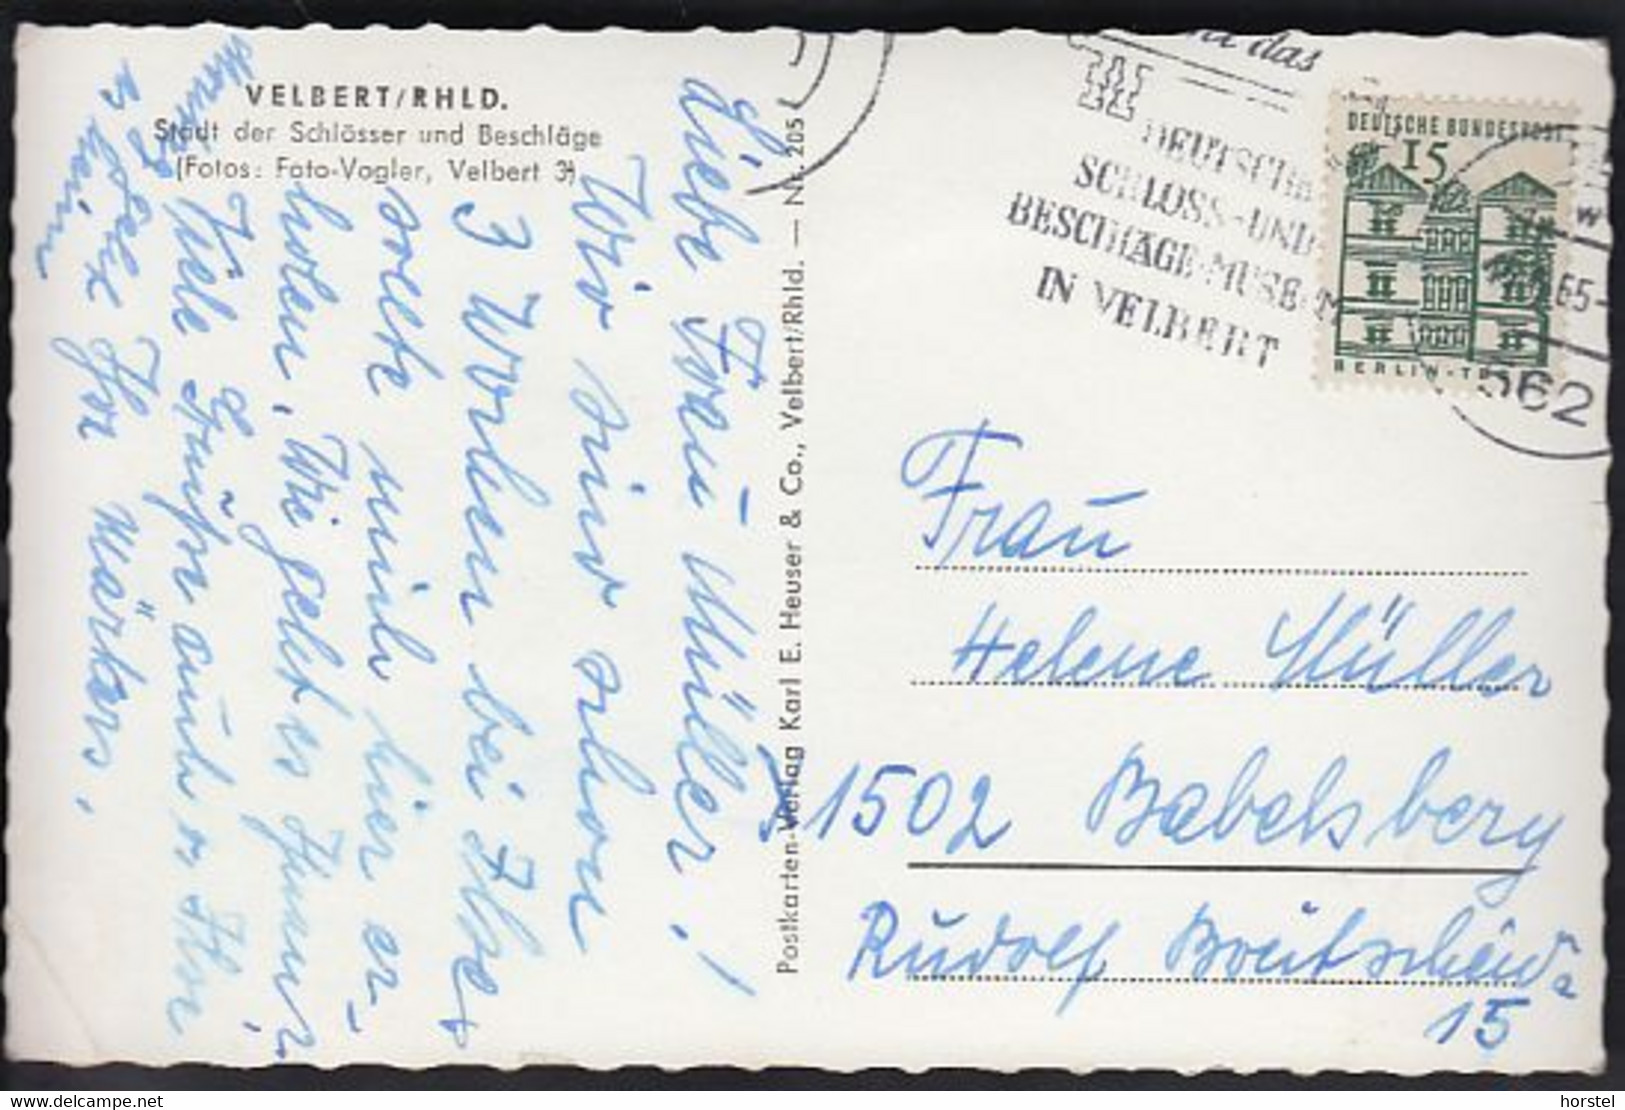 VELBERT/RHLD.
Stadt der Schlösser und Beschläge
(Fotos: Foto-Vogler, Velbert 3)
Liebe Frau Müller!
Wir sind schon
3 Wochen bei Ilse
sollte mich hier er-
holen. Wie geht es Ihnen
Viele Grüße auch v. Ihr
Ihr Märkers,
Postkarten-Verlag Karl E. Heuser & Co., Velbert/Rhld. — Nr. 205
das
DEUTSCHE
SCHLOSS- UND
BESCHLÄGE-MUSEUM
IN VELBERT
DEUTSCHE BUNDESPOST
15
BERLIN-TE
65-
562
Frau
Helene Müller
1502 Babelsberg
Rudolf Breitscheid
15
horstel
www.delcampe.net